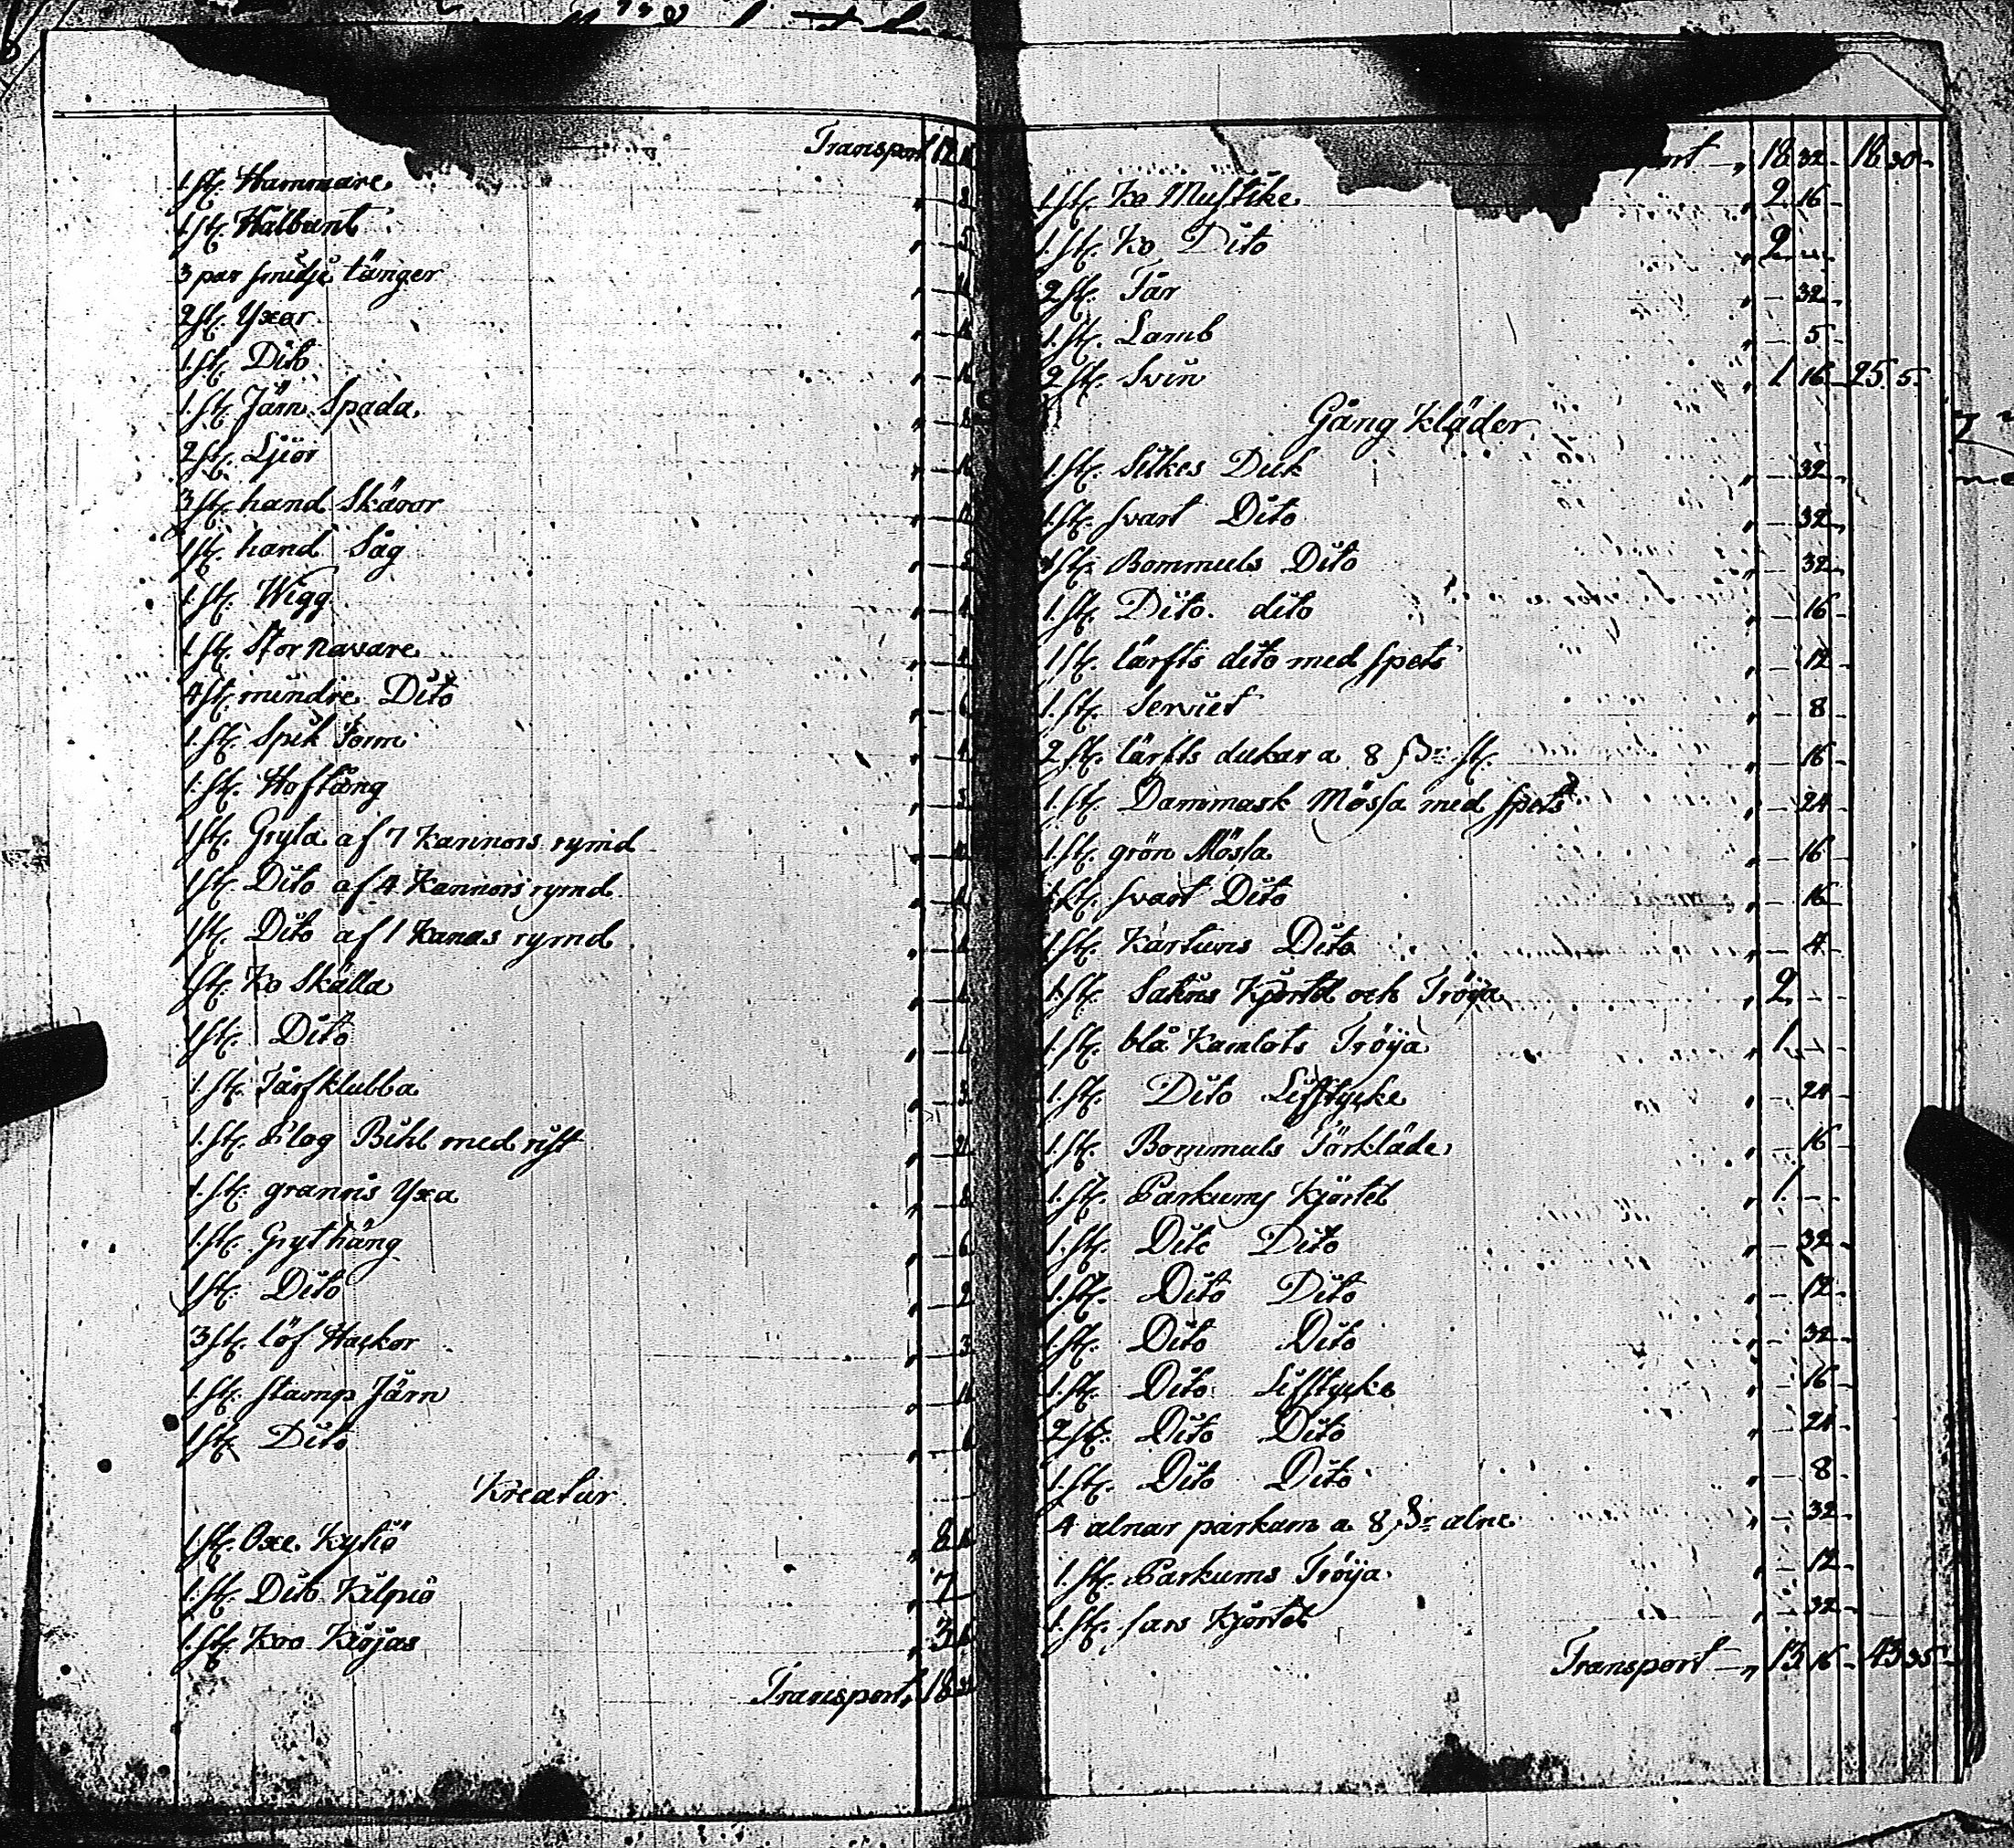 Transport 12
1 st. Hammare 8
1 st. Halbunt 5
3 par smidje tänger
2 st. Yxar 16
1 st. Dito 16
1 st. Järn Spada
2 st. Ljior 16
3 st. hand Skäror 12
1 st. hand Såg 5
1 st. Wigg 4
1 st. Stor navare 4
4 st. mindre Dito 6
1 st. Spik Form 4
1 st. Hoftång 3
1 st. Gryta af 7 Kannors rymd
1 st. Dito af 4 Kannors rymd
1 st. Dito af 1 Kanas rymd
1 st. Ko Skälla
1 st. Dito
1 st. Tårfklubba 3
1 st. Plog Bihl med rist
1 st. granris Yxa 8
1 st. Gryt häng 6
1 st. Dito 2
3 st. löf Hackor 3
1 st. stamp Järn
1 st. Dito 6
Kreatur
1 st. Oxe Kyliö 8
1 st. Dito Kilpiö 7
1 st. Koo Kiöjas 3
Transport 18 32
port 18 32 18 30
1 st. Ko Mustike 2 16
1 st. Ko Dito 2
2 st. Får 32
1 st. Lamb 5
2 st. Svin 1 16 25 5
Gång Kläder
1 st. Silkes Duk 32
1 st. svart Dito 32
1 st. Bommuls Dito 32
1 st. Dito dito 16
1 st. lärfts dito med spets 12
1 st. Serviet 8
2 st. lärfts dukar a 8 st. 16
1 st. Dammask Mössa med spets 24
1 st. grön Mössa 16
1 st. svart Dito 16
1 st. Kartuns Dito 4
1 st. Satins Kjortel och Tröya 2
1 st. blå Kamlots Tröya 1
1 st. Dito Lifstycke 24
1 st. Bommuls Förkläde 16
1 st. Parkums Kjörtel 1
1 st. Dito Dito 32
1 st. Dito Dito 12
1 st. Dito Dito 32
1 st. Dito Lifstycke 16
2 st. Dito Dito 24
1 st. Dito Dito 8
4 alnar parkum a 8 alne 32
1 st. Parkums Tröya 12
1 st. sars Kjörtel 32
Transport 13 16 43 35